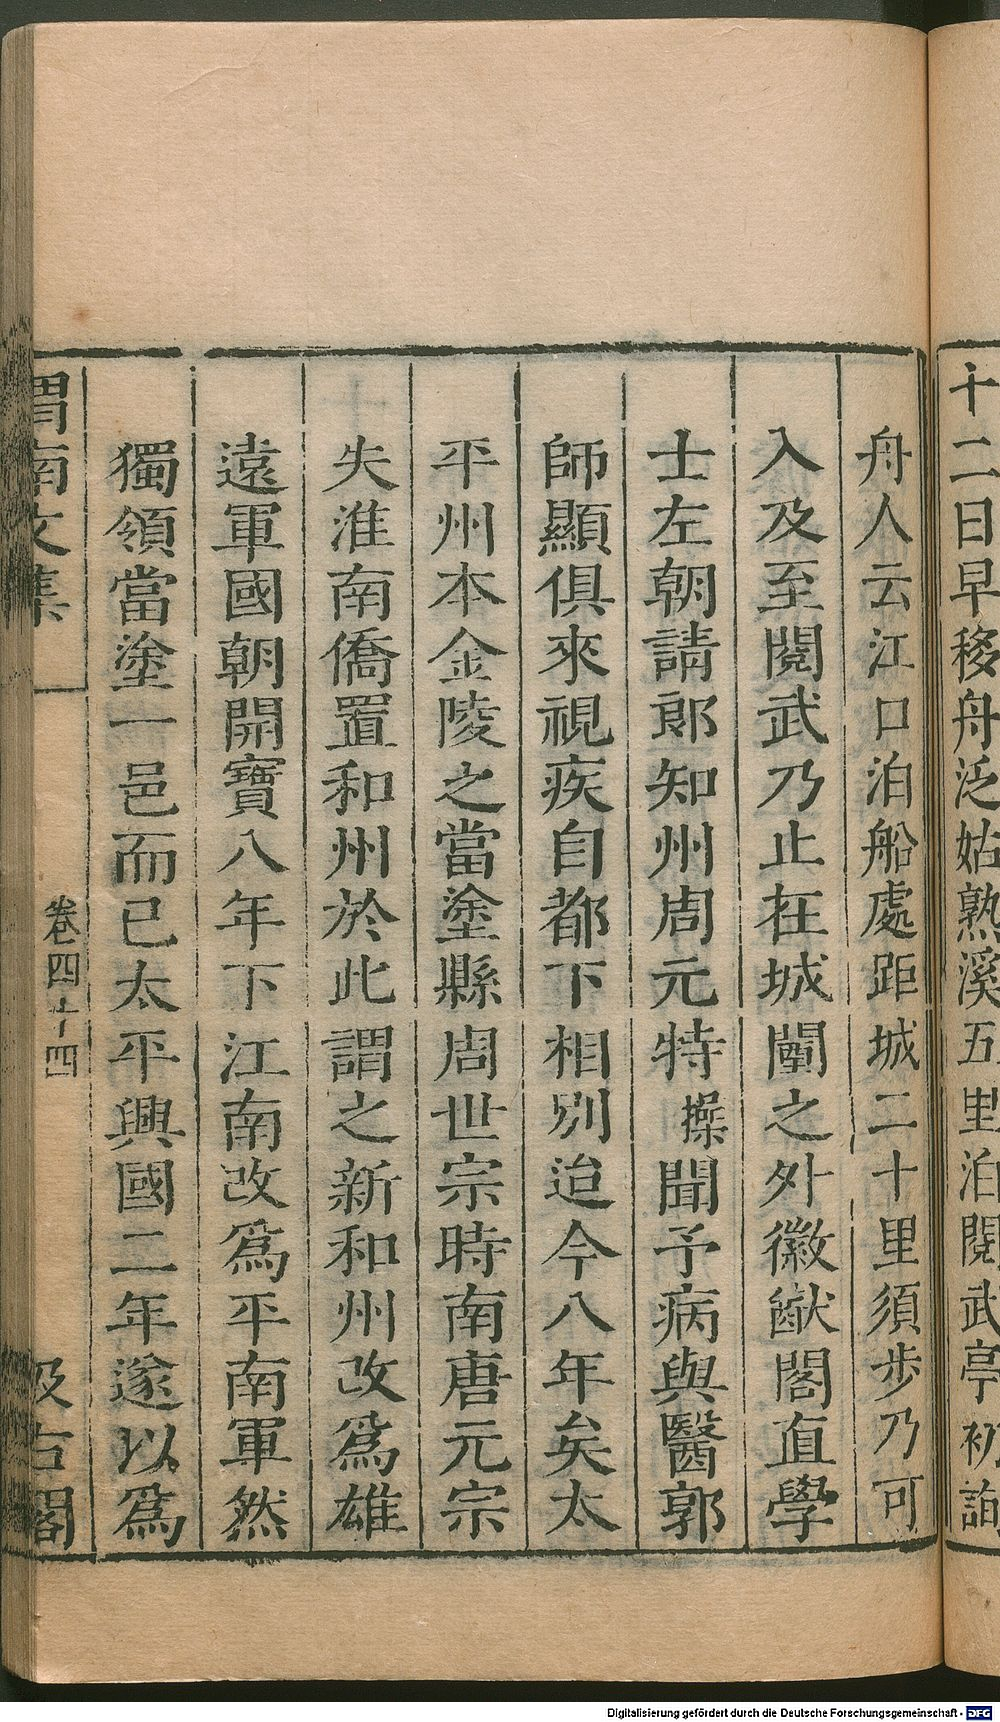 十二日早移舟泛姑熟溪五里泊閱武亭初詢
舟人云江口泊船處距城二十里須步乃可
入及至閱武乃止在城闉之外徽猷閣直學
士左朝請郎知州周元特操聞予病與醫郭
師顯俱來視疾自都下相別迨今八年矣太
平州本金陵之當塗縣周世宗時南唐元宗
失淮南僑置和州於此謂之新和州改爲雄
遠軍國朝開寶八年下江南改爲平南軍然
獨領當塗一邑而已太平興國二年遂以爲
渭南文集
卷四十四
汲古閣
Digitalisierung gefördert durch die Deutsche Forschungsgemeinschaft - DFG